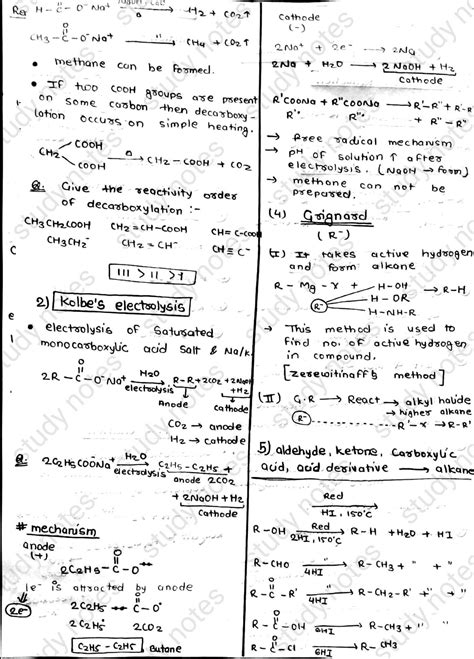 Rxn H-C-O⁻Na⁺ → H2 + CO2↑
O
CH3-C-O⁻Na⁺ → CH4 + CO2↑
• methane can be formed.
• If two COOH groups are present
on some carbon then decarboxy-
lation occurs on simple heating.
CH2 COOH COOH →Δ CH2-COOH + CO2
Q. Give the reactivity order
of decarboxylation :-
CH3CH2COOH CH2=CH-COOH CH≡C-COOH
CH3CH2⁻ CH2=CH⁻ CH≡C⁻
III > II > I
2) Kolbe's electrolysis
• electrolysis of saturated
monocarboxylic acid salt & Na/K.
O
2R-C-O⁻Na⁺ H2O electrolysis → R-R+2CO2 +2NaOH +H2
Anode cathode
CO2 → anode
H2 → cathode
Q. 2C2H5COONa⁺ H2O electrolysis → C2H5-C2H5 +
anode 2CO2
+ 2NaOH+H2
Cathode
# mechanism
anode
(+)
O
2C2H5-C-O⁻
1e⁻ is attracted by anode
2e⁻
O
2C2H5-C-O·
2C2H5· 2CO2
C2H5-C2H5, Butane
cathode
(-)
2Na⁺ + 2e⁻ → 2Na
2Na + H2O → 2NaOH + H2
Cathode
R'COONa + R"COONa → R'-R" + R-R
R'· R"· + R"-R"
→ free radical mechanism
→ pH of solution ↑ after
electrolysis. (NaOH → form)
→ methane can not be
prepared.
(4) Grignard
(R⁻)
(I) It takes active hydrogen
and form alkane
R-Mg-X + H-OH → R-H
R⁻ H-OR
H-NH-R
→ This method is used to
find no. of active hydrogen
in compound.
[zerewitinoff's method]
(II) G.R → React → alkyl halide
→ higher alkane
R⁻ R'-X → R-R'
5) aldehyde, ketone, Carboxylic
acid, acid derivative → alkane
Red
HI, 150°C
R-OH Red 2HI, 150°C → R-H + H2O + HI
R-CHO 4HI → R-CH3 + " + "
O
R-C-R' 4HI → R-CH2-R' + " + "
O
R-C-OH 6HI → R-CH3 + " "
O
R-C-Cl 6HI → R-CH3
study notes